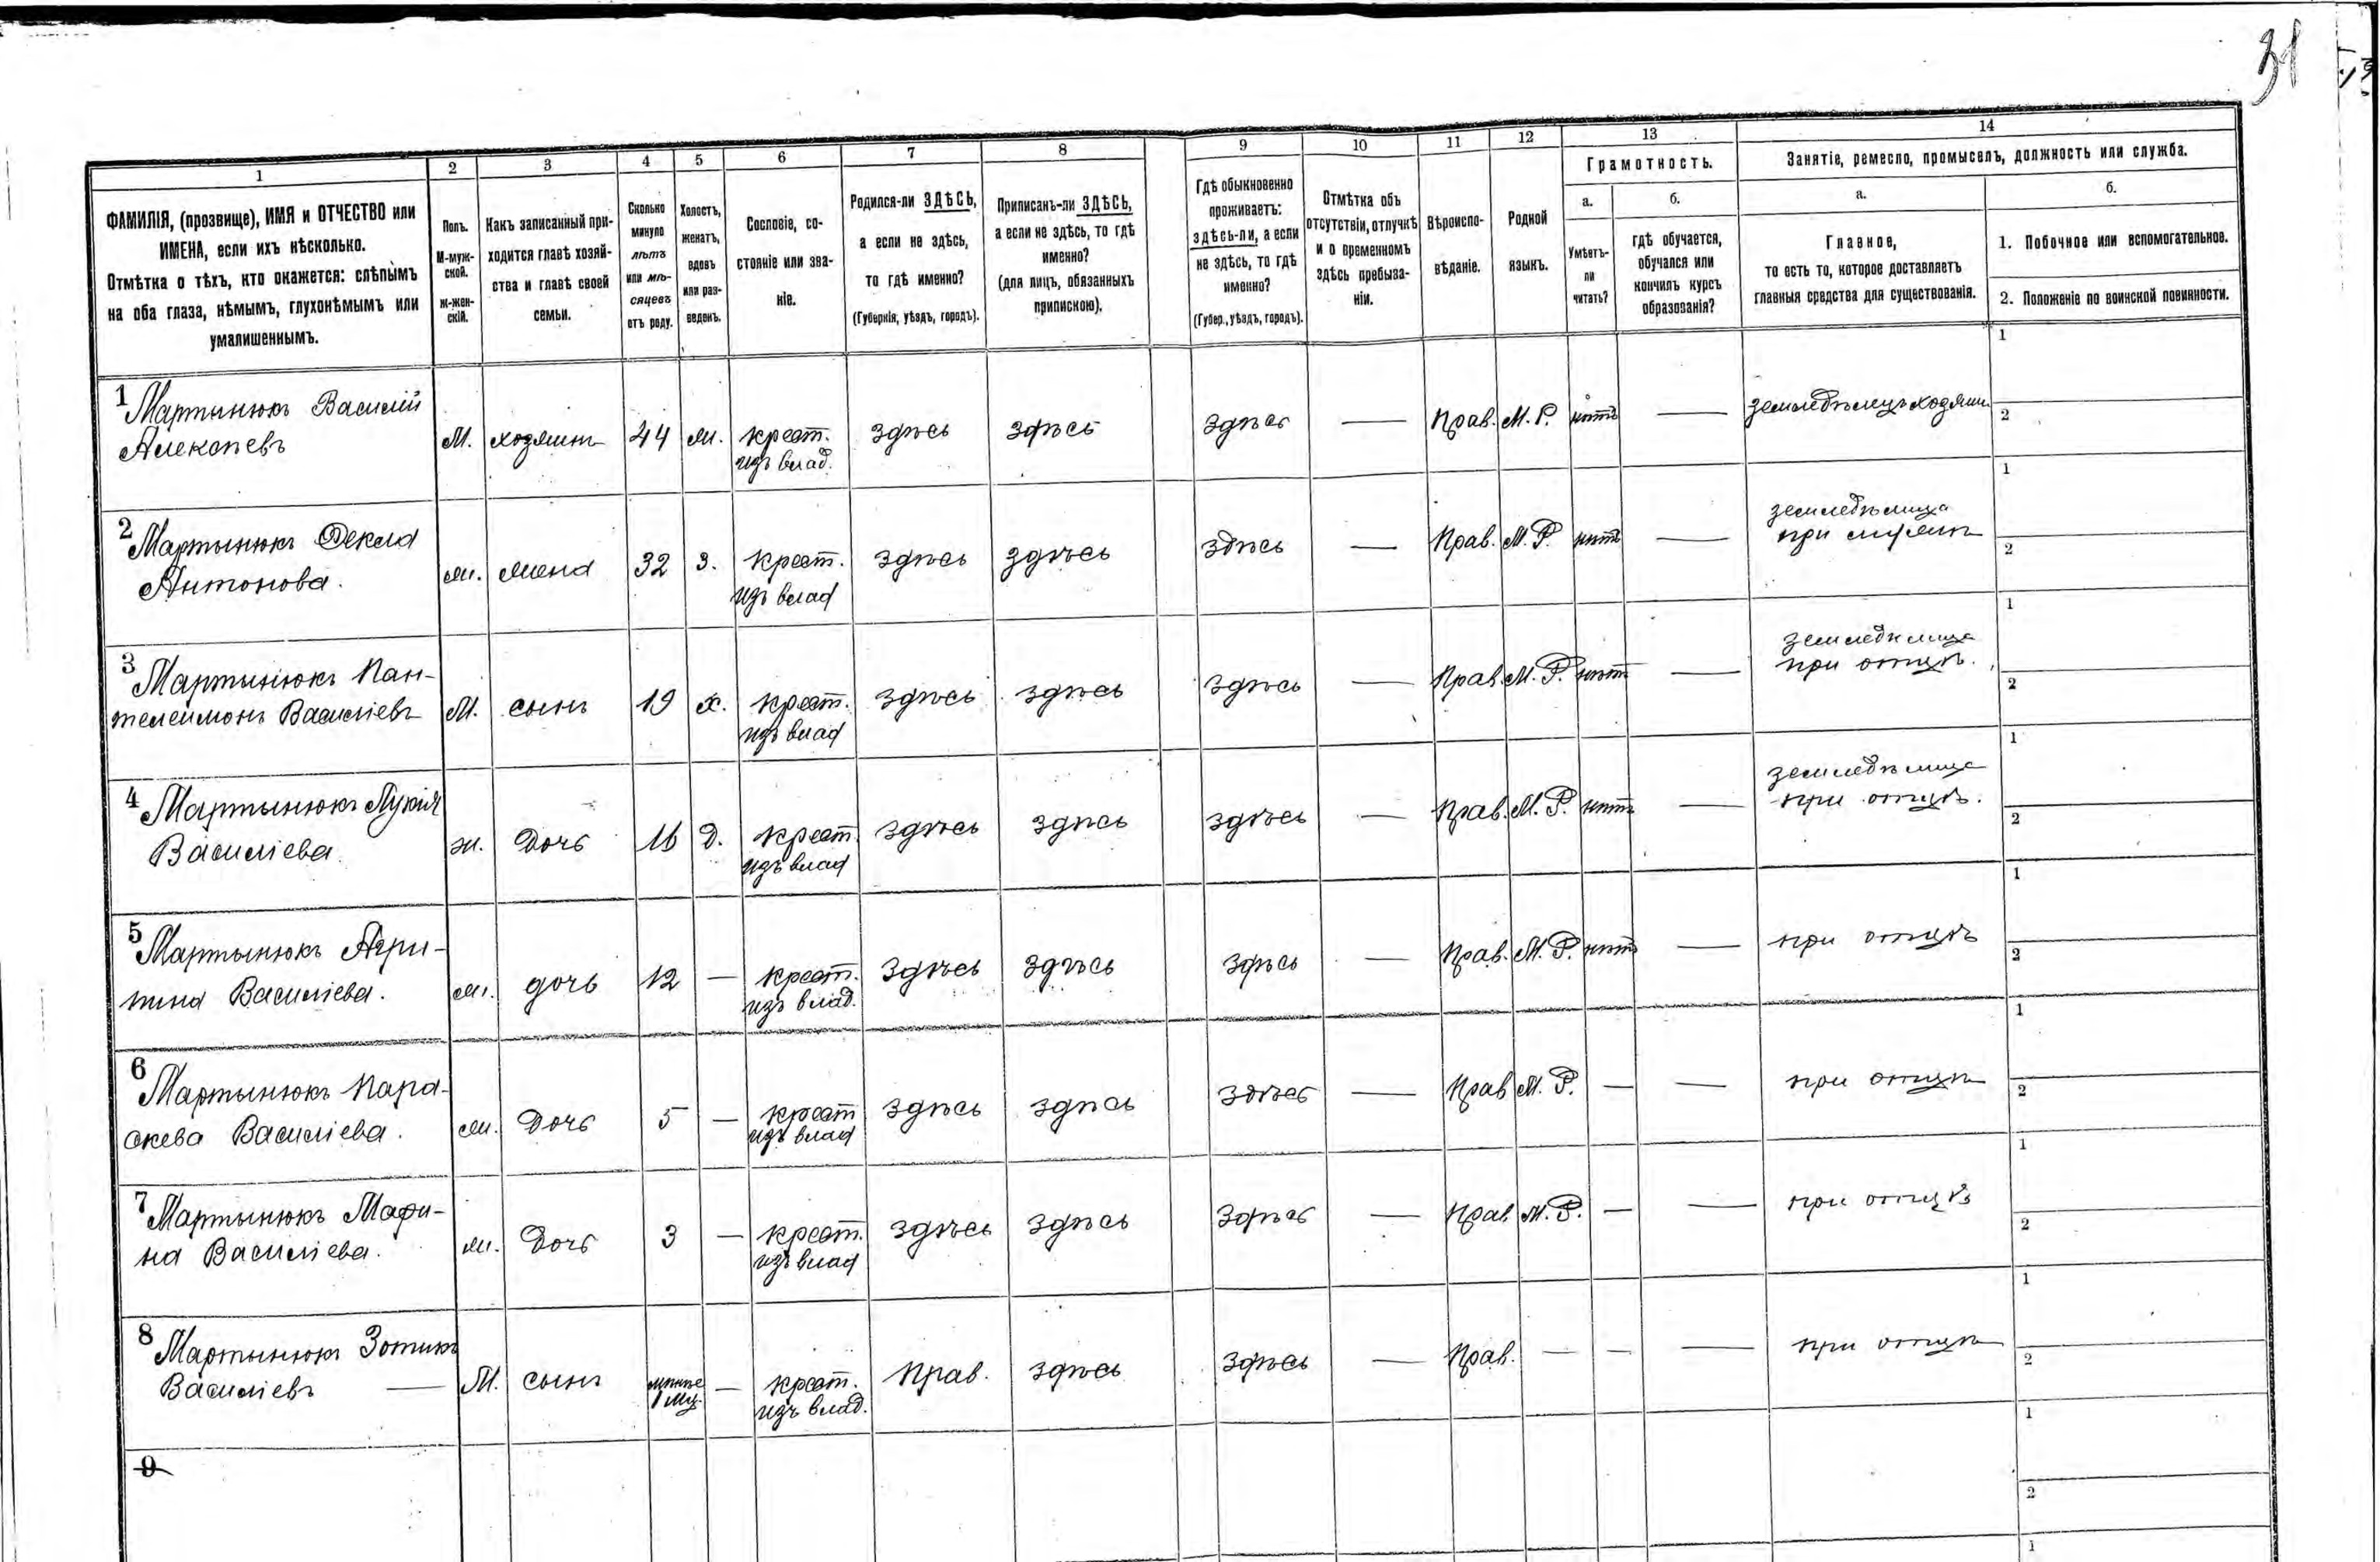 31
1 2 3 4 5 6 7 8 9 10 11 12 13 14
ФАМИЛІЯ, (прозвище), ИМЯ и ОТЧЕСТВО или
ИМЕНА, если ихъ нѣсколько.
Отмѣтка о тѣхъ, кто окажется: слѣпымъ
на оба глаза, нѣмымъ, глухонѣмымъ или
умалишеннымъ.
Полъ.
М-муж-
ской.
ж-жен-
скій.
Какъ записанный при-
ходится главѣ хозяй-
ства и главѣ своей
семьи.
Сколько
минуло
лѣтъ
или мѣ-
сяцевъ
отъ роду.
Холостъ,
женатъ,
вдовъ
или раз-
веденъ.
Сословіе, со-
стояніе или зва-
ніе.
Родился-ли ЗДѢСЬ,
а если не здѣсь,
то гдѣ именно?
(Губернія, уѣздъ, городъ).
Приписанъ-ли ЗДѢСЬ,
а если не здѣсь, то гдѣ
именно?
(для лицъ, обязанныхъ
припискою).
Гдѣ обыкновенно
проживаетъ:
здѣсь-ли, а если
не здѣсь, то гдѣ
именно?
(Губер., уѣздъ, городъ).
Отмѣтка объ
отсутствіи, отлучкѣ
и о временномъ
здѣсь пребыва-
ніи.
Вѣроиспо-
вѣданіе.
Родной
языкъ.
Грамотность.
а.
Умѣетъ-
ли
читать?
б.
гдѣ обучается,
обучался или
кончилъ курсъ
образованія?
Занятіе, ремесло, промыселъ, должность или служба.
а.
Главное,
то есть то, которое доставляетъ
главныя средства для существованія.
б.
1. Побочное или вспомогательное.
2. Положеніе по воинской повинности.
1 Мартынюкъ Василій
Алексѣевъ М. хозяинъ 44 ж. крест. здѣсь здѣсь здѣсь — Прав. М. Р. нѣтъ — земледѣлецъ хозяин 1
изъ влад. 2
2 Мартынюкъ Ѳекла
Антонова. ж. жена 32 з. крест. здѣсь здѣсь здѣсь — Прав. М. Р. нѣтъ — земледѣлица 1
изъ влад при мужѣ 2
3 Мартынюкъ Пан-
телеимонъ Василіевъ М. сынъ 19 х. крест. здѣсь здѣсь здѣсь — Прав. М. Р. нѣт — земледѣлица 1
изъ влад при отцѣ. 2
4 Мартынюкъ Лукія
Василіева. ж. Дочь 16 д. крест здѣсь здѣсь здѣсь — Прав. М. Р. нѣтъ — земледѣлица 1
изъ влад при отцѣ. 2
5 Мартынюкъ Агри-
пина Василіева. ж. дочь 12 — крест. здѣсь здѣсь здѣсь — Прав. М. Р. нѣтъ — при отцѣ 1
изъ влад. 2
6 Мартынюкъ Пара-
скева Василіева. ж. Дочь 5 — крест здѣсь здѣсь здѣсь — Прав М. Р. — — при отцѣ 1
изъ влад 2
7 Мартынюкъ Мари-
на Василіева. ж. Дочь 3 — крест. здѣсь здѣсь здѣсь — Прав. М. Р. — — при отцѣ 1
изъ влад 2
8 Мартынюкъ Зотикъ
Василіевъ — М. сынъ менѣе — крест. Прав. здѣсь здѣсь — Прав. — — — при отцѣ 1
1 мц. изъ влад. 2
9
1
2
1